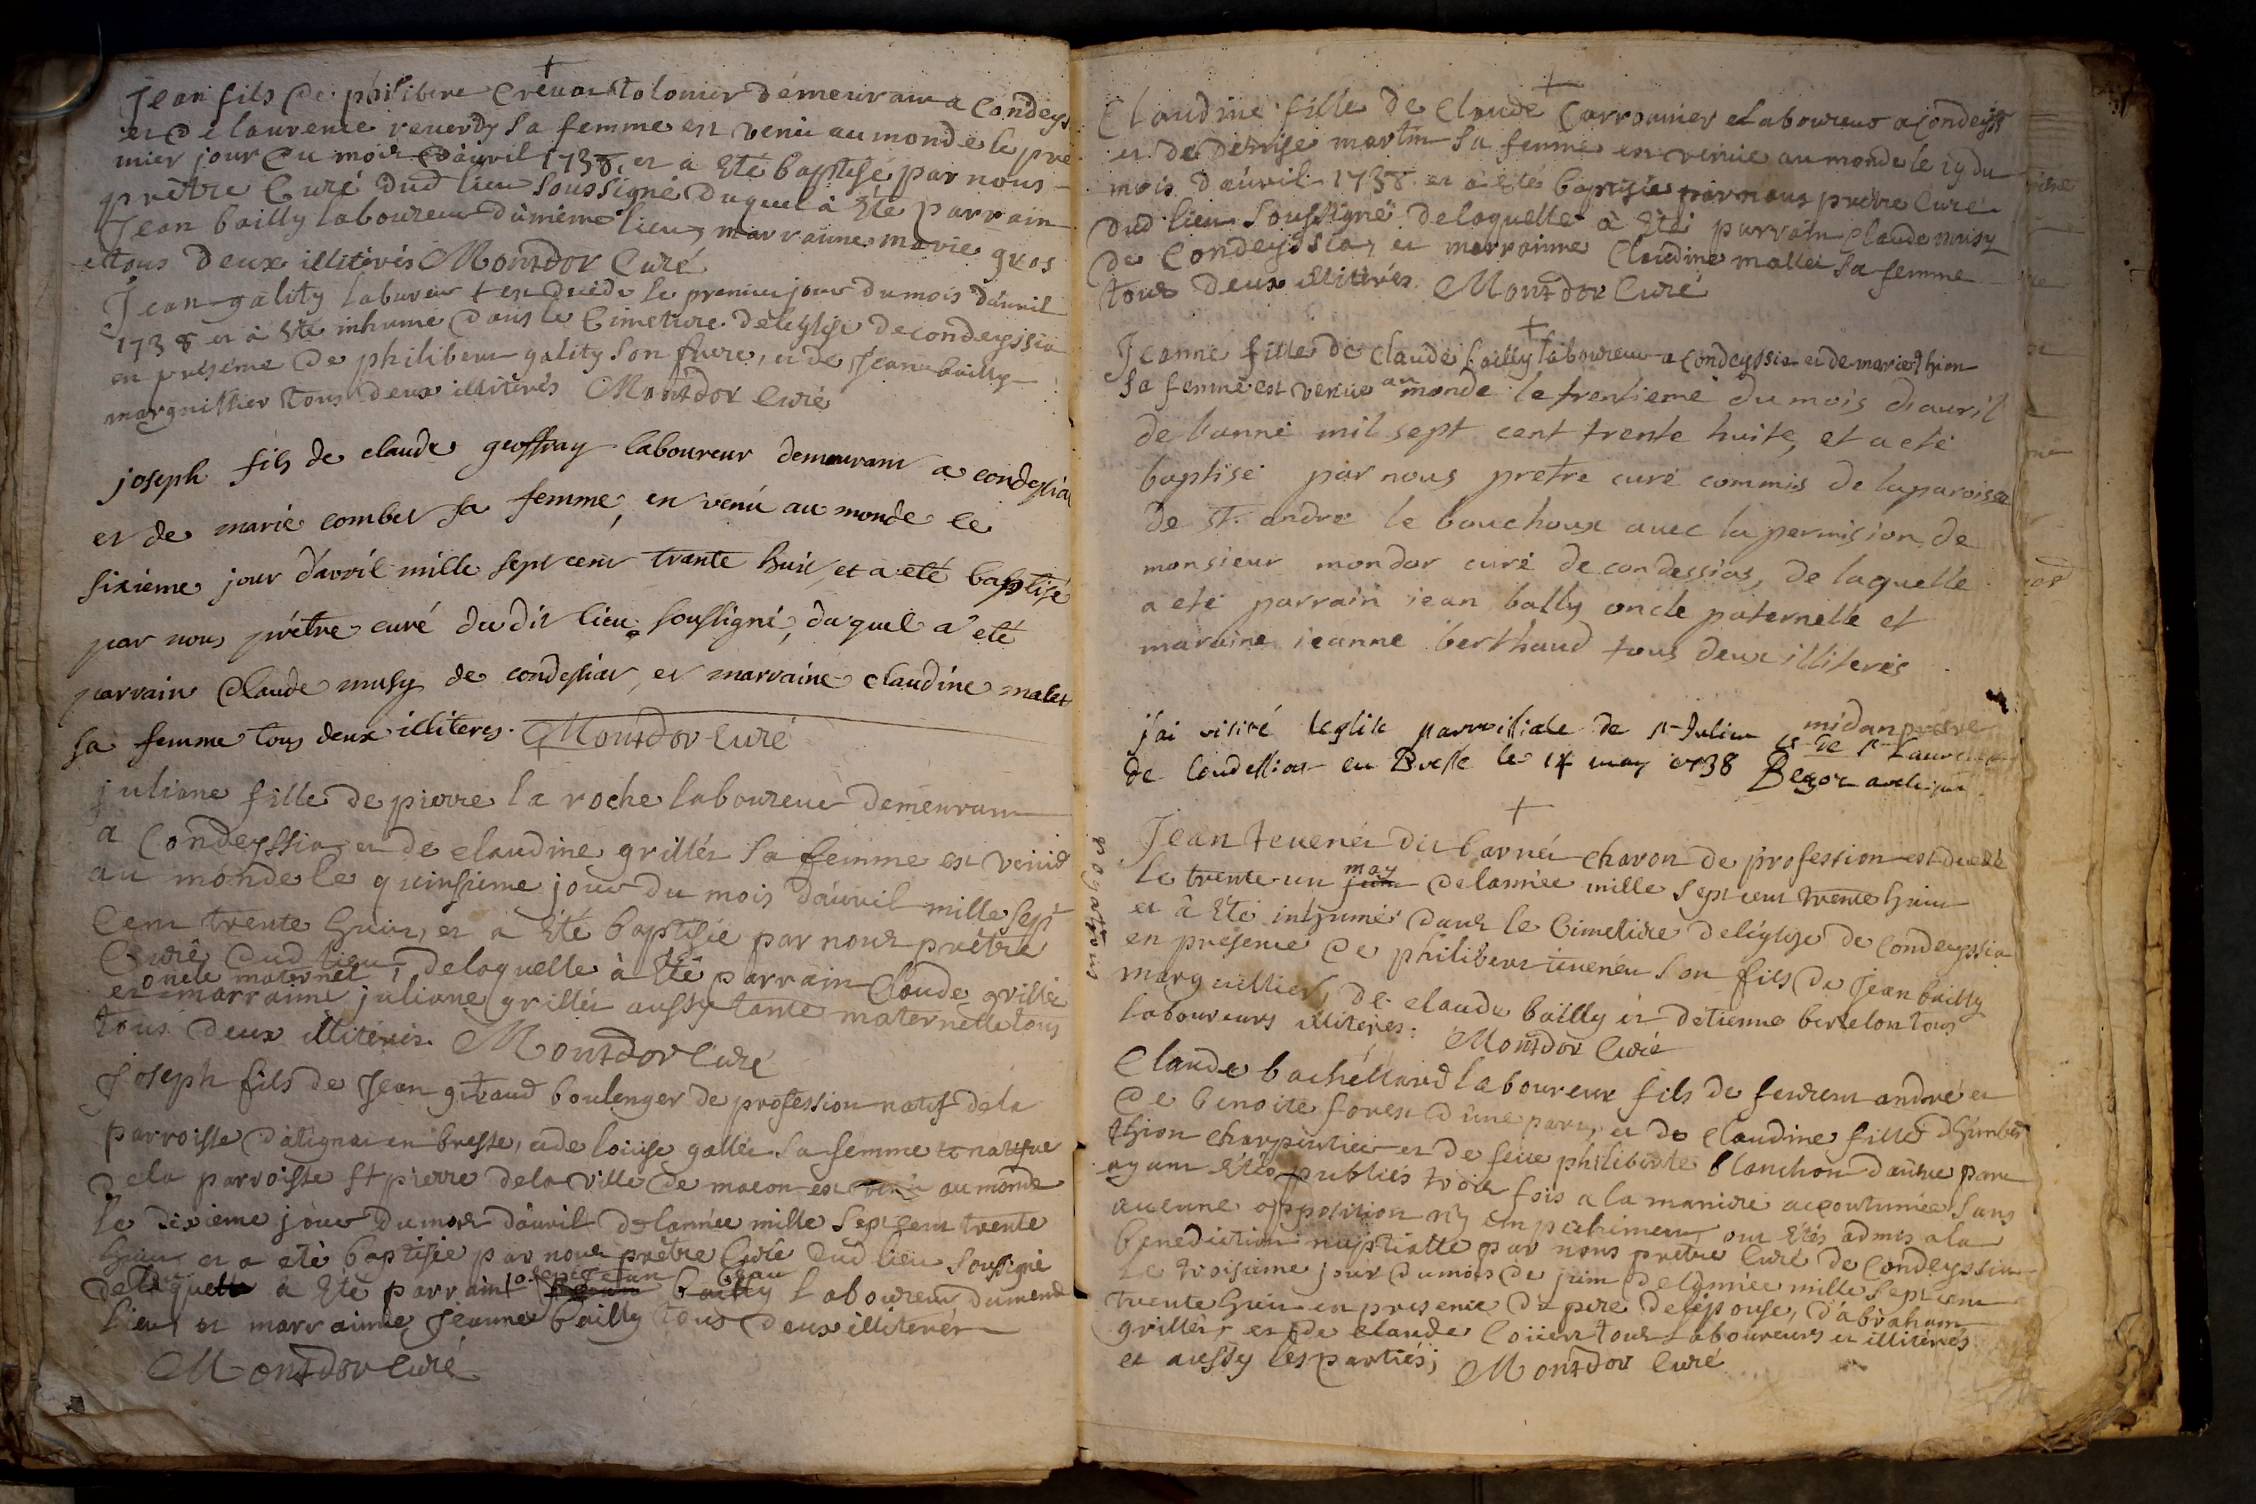 Jean fils de philibert Crévat tolonier démeurant a Condeyss
et de laurence reverdy sa femme est venu au monde le pre
mier jour du mois d'avril 1738. et a Eté baptisé par nous
prêtre Curé dud lieu soussigné duquel à Eté parrain
Jean bailly laboureur dumême lieu, marrainne marie gros
tous deux illiterés Montdor Curé
Jean gality laboureur est decédé le premier jour du mois d'avril
1738 et à Eté inhumé dans le Cimetiere de leglise de condeyssia
en presence de philibert gality son frere, et de Jean bailly
marguillier tous deux illiterés Montdor Curé
joseph fils de claude geoffray laboureur demeurant a condessiat
et de marie combet sa femme, en venú au monde le
sixieme jour d'avril mille sept cent trante huit, et a eté baptisé
par nous prêtre curé du dit lieu soussigné, duquel a eté
parrain Claude musy de condessiat, et marraine claudine malet
sa femme tous deux illiteres. Montdor Curé
juliane fille de pierre la roche laboureur demeurant
a Condeyssia et de claudine grillet sa femme est venue
au monde le quinsieme jour du mois d'avril mille sept
Cent trente huit, et a Eté baptisée par nous prêtre
Curé dud lieu, delaquelle à Eté parrain Claude grillet
oncle maternel
et marraine juliane grillet aussy tante maternelle tous
tous deux illiterés. Montdor Curé
Joseph fils de Jean giraud boulenger de profession natif dela
parroisse d'atignat en bresse, et de louise gallet sa femme natifve
dela parroisse st pierre dela ville de macon est venu au monde
le dixieme jour du mois d'avril de lannée mille sept cent trente
huit et a eté baptisée par nous prêtre Curé dud lieu soussigné
delaquelle à Eté parrain bailly laboureur dumeme
lieu et marrainne Jeanne bailly tous deux illiterés
Montdor Curé
Claudine fille de Claude Carronnier laboureur a Condeyss
et de denise martin sa femme est venue au monde le 19 du
mois d'avril 1738 et à Eté baptisée par nous prêtre Curé
dud lieu soussigné delaquelle à Eté parrain Claude musy
de Condeyssia, et marrainne Claudine mallet sa femme
tous deux illiterés. Montdor Curé
Jeanne fille de claude bailly laboureur a Condeyssia et de marie thion
sa femme est venue au monde le trentieme du mois d'avril
de l'anné mil sept cent trente huite, et a eté
baptisé par nous pretre curé commis de la paroisse
de st. andré le bouchoux avec la permision de
monsieur mondor curé de condessias, de laquelle
a eté parrain iean bally oncle paternelle et
maraine ieanne berthaud tous deux illiterés
midan prêtre
j'ai visité leglise parroissiale de st Julien et de st Laurent
de Condessiat en Bresse le 14 may 1738 Begoz archiprêtre
Jean tevenet dit Carnet charon de profession est decedé
le trente un juin may delannée mille sept cent trente huit
et à Eté inhumé dans le Cimetiere de légise de Condeyssia
en presence de philibert tevenet son fils de Jean bailly
marguillier, de claude bailly et detienne bertelon tous
laboureurs illiterés: Montdor Curé
rogations
Claude bachellard laboureur fils de feurent andré et
de benoite forest d'une part, et de Claudine fille d'himbert
thion charpentier et de feue philiberte blanchon d'autre part
ayant Etés publiés trois fois a la maniere accoutumée sans
aucune opposition n'y empechement, ont Etés admis ala
benediction nuptialle par nous pretre Curé de Condeyssia
le troisieme jour dumois de juin de lannée mille sept cent
trente huit en presence du pere de lépouse, d'abraham
grillet, et de claude tous laboureurs et illiterés
et aussy les partiés; Montdor Curé